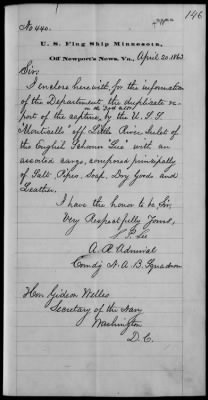 146
No 440.
U. S. Flag Ship Minnesota,
Off Newport's News, Va., April 20. 1863
Sir:
I enclose herewith, for the information
of the Department the duplicate re-
port of the capture, by the U. S. S.
on the 3rd inst
"Monticello" off Little River Inlet of
the English Schooner "Sue" with an
assorted cargo, composed principally
of Salt, Pipes, Soap, Dry Goods and
Leather.
I have the honor to be, Sir,
Very Respectfully Yours,
S. P. Lee
A. R. Admiral
Comdg N. A. B. Squadron
Hon Gideon Welles
Secretary of the Navy
Washington
D. C.